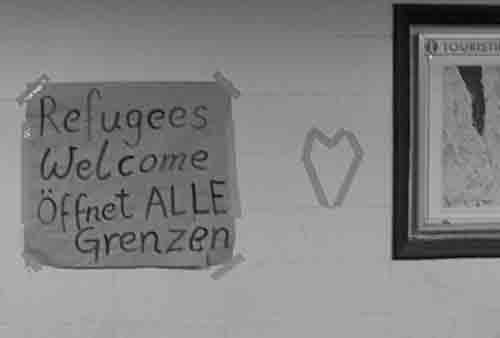 Refugees
Welcome
Öffnet ALLE
Grenzen